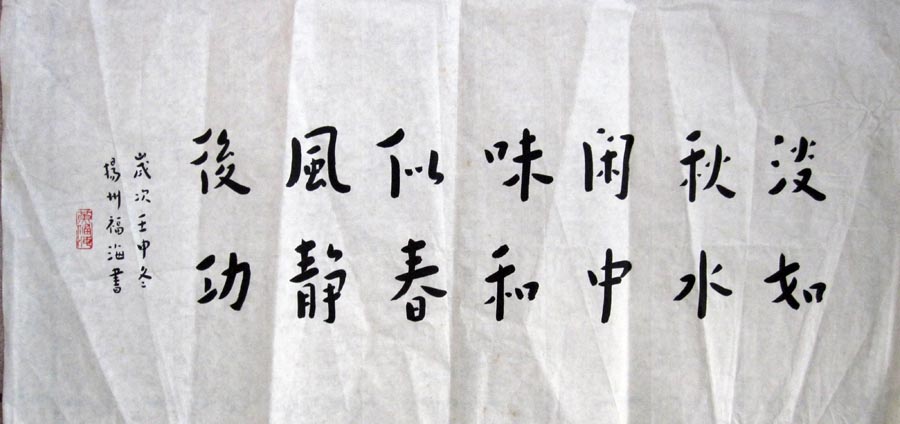 淡如
秋水
闲中
味和
似春
風静
後功
歲次壬申冬
揚州福海書